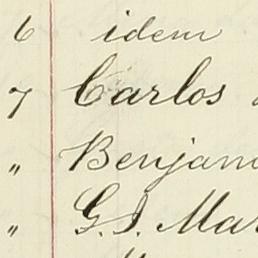 6 idem
7 Carlos
" Benjam
" G. I. Mar